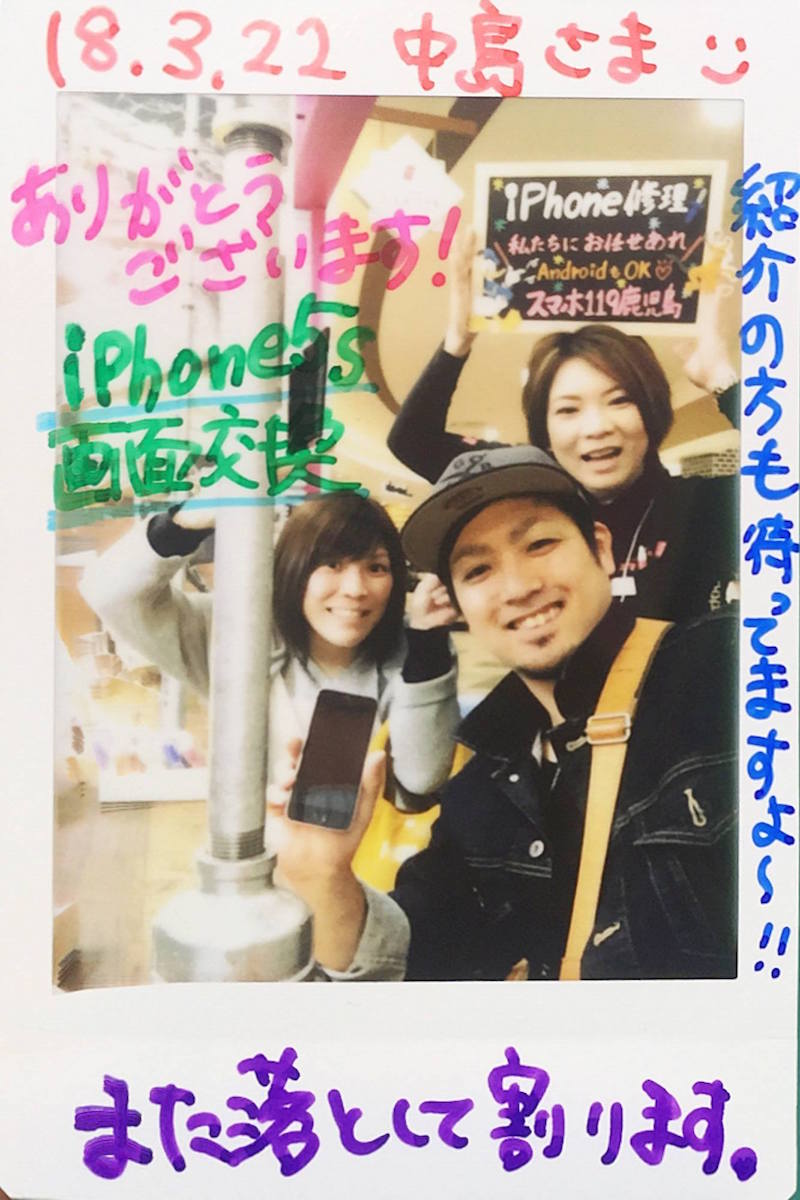 18.3.22 中島さま
ありがとう
ございます!
iPhone5s
画面交換
iPhone修理!
私たちにお任せあれ
AndroidもOK♡
スマホ119鹿児島
紹介の方も待ってますよ〜!!
また落として割ります。